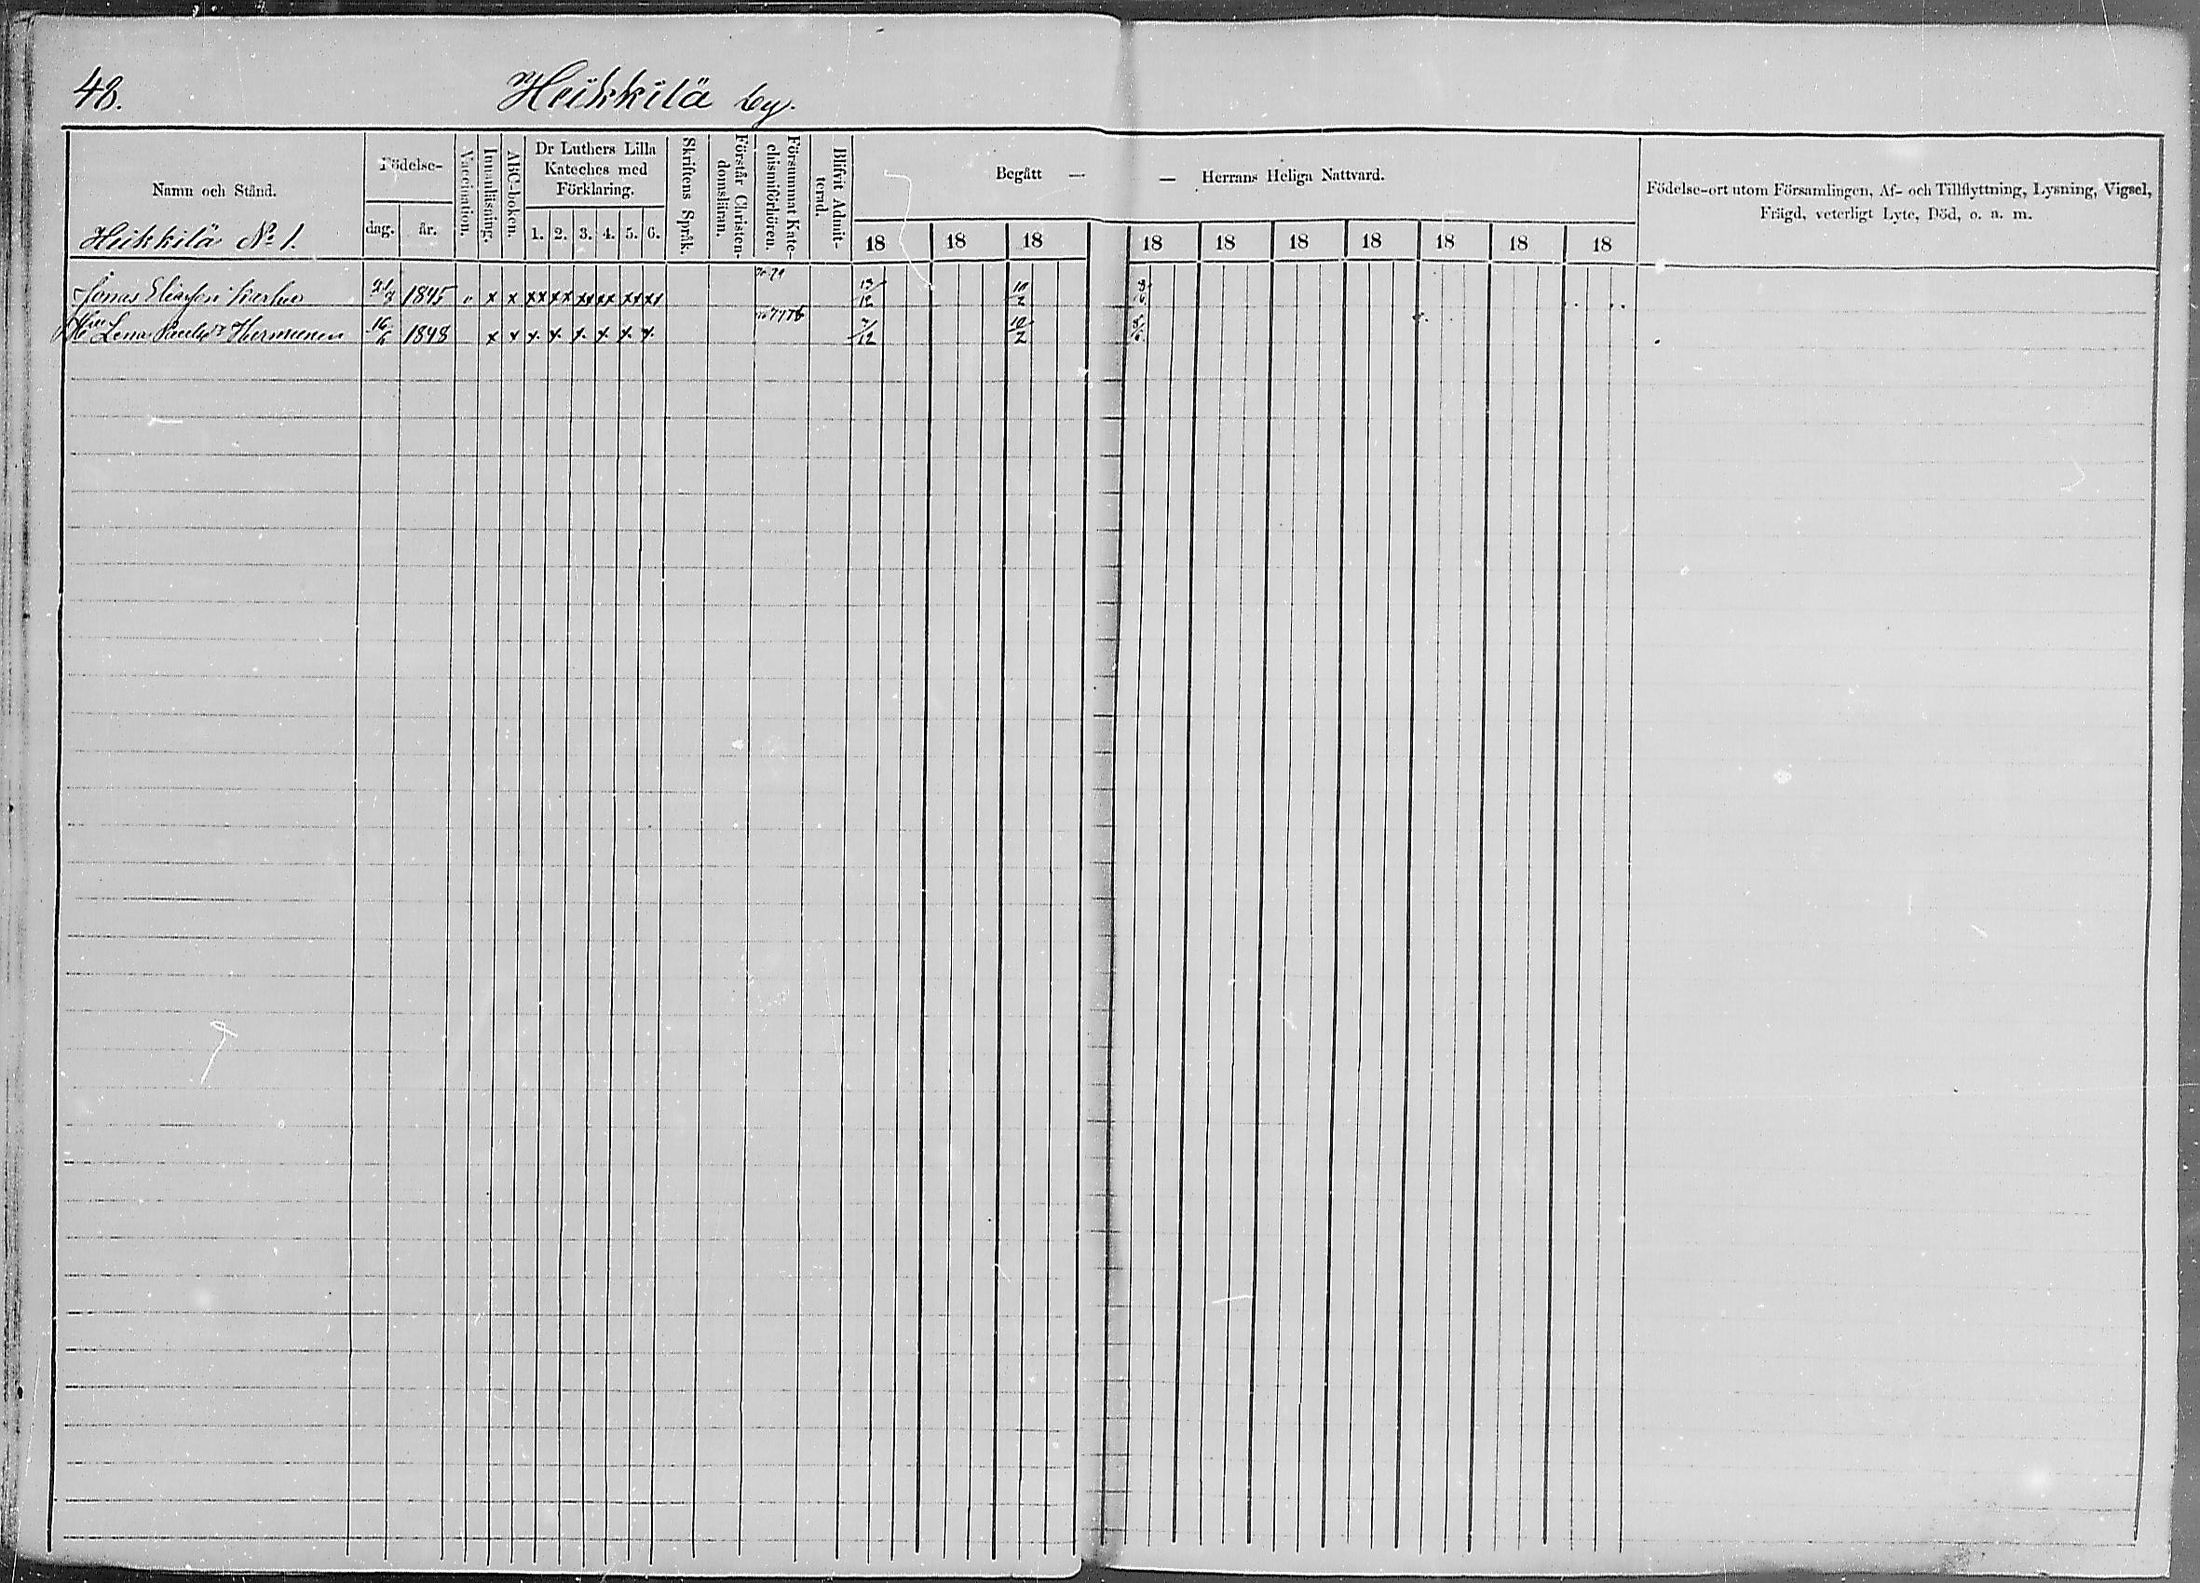 48. Heikkilä by.
Namn och Stånd.
Födelse-
dag. år.
Vaccination.
Innanläsning.
ABC-boken.
Dr Luthers Lilla
Kateches med
Förklaring.
1. 2. 3. 4. 5. 6.
Skriftens Språk.
Förstår Christen-
domsläran.
Försummat Kate-
chismiförhören.
Blifvit Admit-
terad.
Begått — — Herrans Heliga Nattvard.
18 18 18 18 18 18 18 18 18 18
Födelse-ort utom Församlingen, Af- och Tillflyttning, Lysning, Vigsel,
Frägd, veterligt Lyte, Död, o. a. m.
Heikkilä No 1.
Jonas 1845 " x x xx xx xx xx xx xx 13/12 10/2
Hu Lena Hermunen 16/6 1848 x x x. x. x. x. x. x. 7/12 10/2